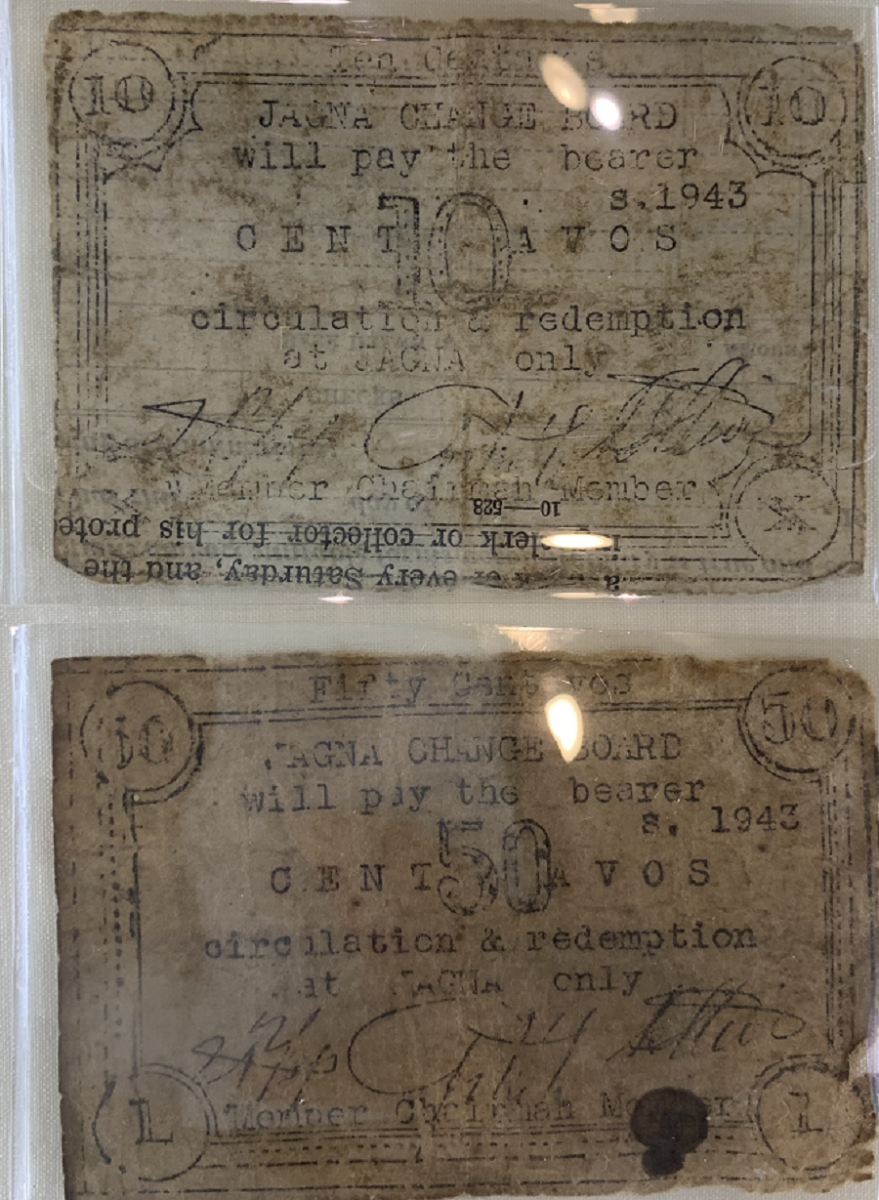 Ten Centavos
10 10
JAGNA CHANGE BOARD
will pay the bearer
s.1943
CENT 10 AVOS
circulation & redemption
at JAGNA only
CHECKS
Member Chairman Member
10—528
X
clerk or collector for his prote
every Saturday, and the
Fifty Centavos
50 50
JAGNA CHANGE BOARD
will pay the bearer
s. 1943
CENT 50 AVOS
circulation & redemption
at JAGNA only
L L
Member Chairman Member